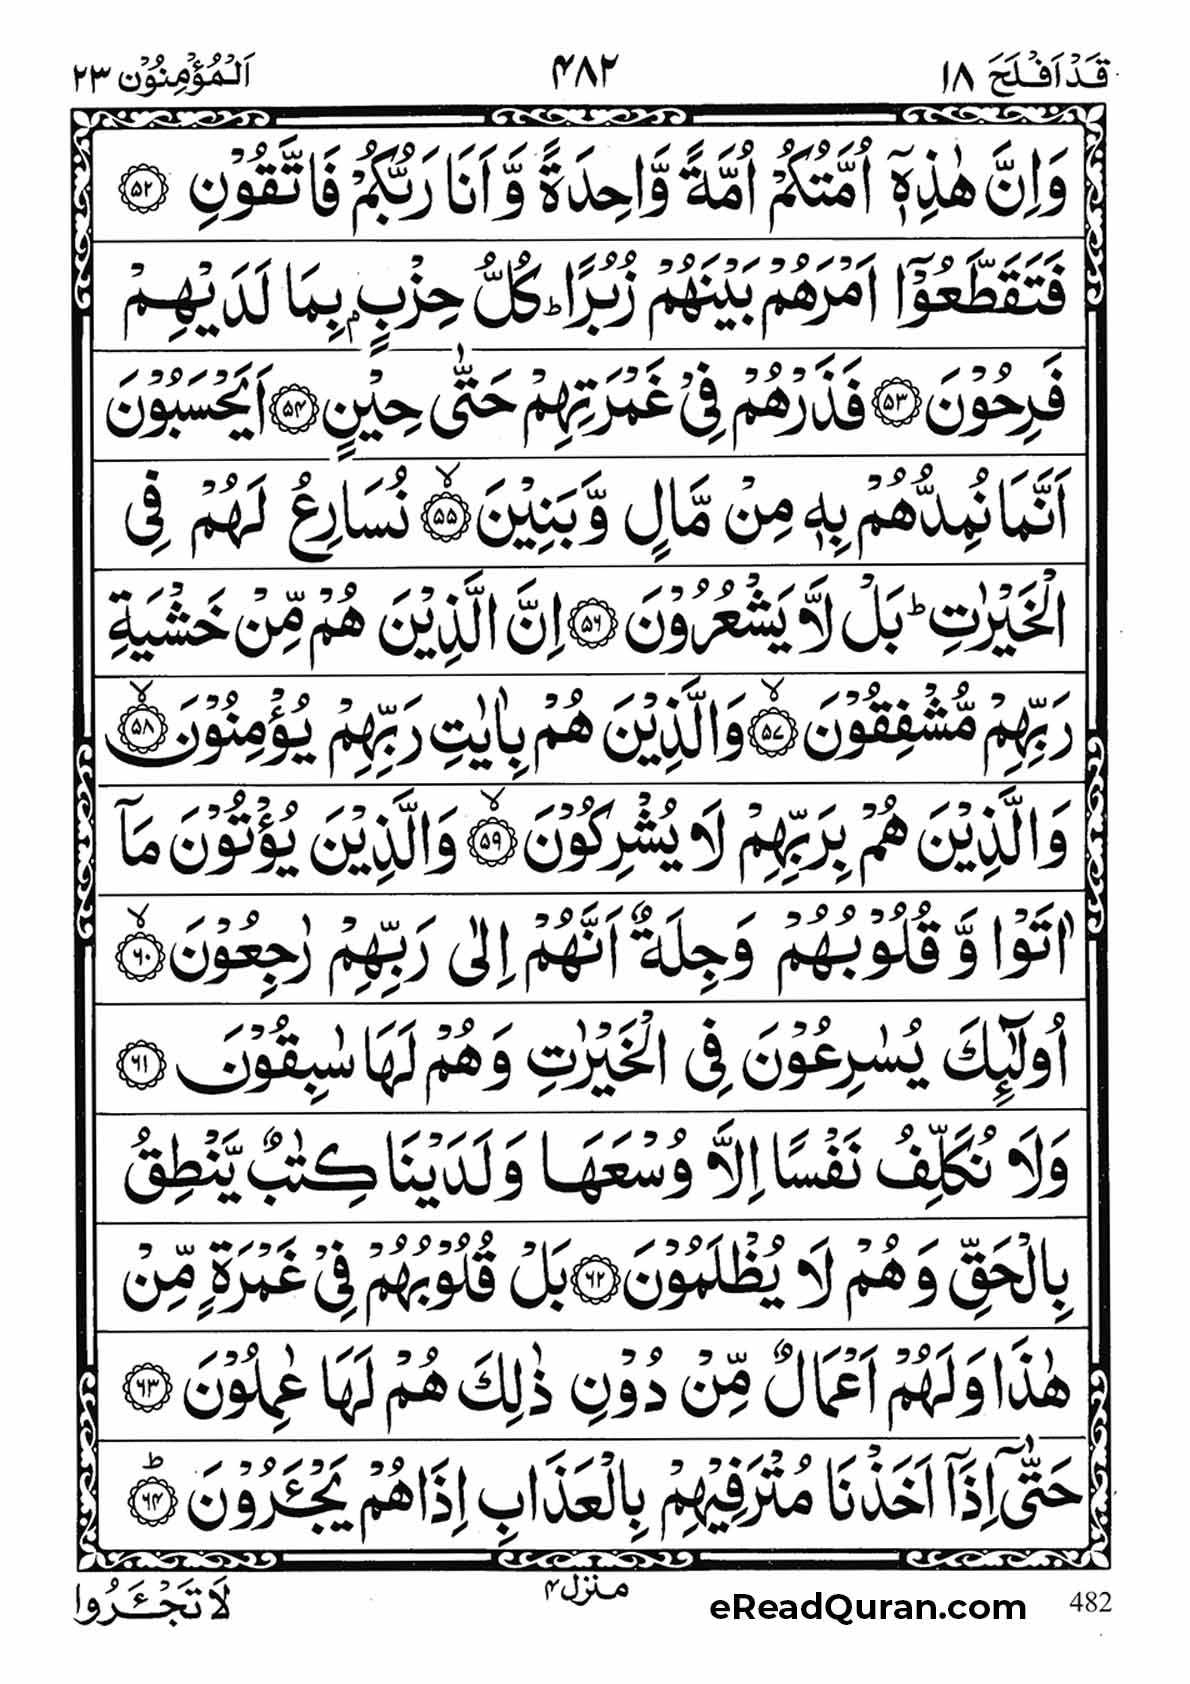 قَدْ اَفْلَحَ ١٨ ۴٨٢ اَلْمُؤْمِنُوْن ٢٣
وَاِنَّ هٰذِهٖۤ اُمَّتُكُمْ اُمَّةً وَّاحِدَةً وَّاَنَا رَبُّكُمْ فَاتَّقُوْنِ ۝٥٢
فَتَقَطَّعُوْۤا اَمْرَهُمْ بَيْنَهُمْ زُبُرًا ؕ كُلُّ حِزْبٍۭ بِمَا لَدَيْهِمْ
فَرِحُوْنَ ۝٥٣ فَذَرْهُمْ فِيْ غَمْرَتِهِمْ حَتّٰى حِيْنٍ ۝٥۴ اَيَحْسَبُوْنَ
اَنَّمَا نُمِدُّهُمْ بِهٖ مِنْ مَّالٍ وَّبَنِيْنَ ۝٥٥ۙ نُسَارِعُ لَهُمْ فِي
الْخَيْرٰتِ ؕ بَلْ لَّا يَشْعُرُوْنَ ۝٥٦ اِنَّ الَّذِيْنَ هُمْ مِّنْ خَشْيَةِ
رَبِّهِمْ مُّشْفِقُوْنَ ۝٥٧ۙ وَالَّذِيْنَ هُمْ بِاٰيٰتِ رَبِّهِمْ يُؤْمِنُوْنَ ۝٥٨ۙ
وَالَّذِيْنَ هُمْ بِرَبِّهِمْ لَا يُشْرِكُوْنَ ۝٥٩ۙ وَالَّذِيْنَ يُؤْتُوْنَ مَاۤ
اٰتَوْا وَّقُلُوْبُهُمْ وَجِلَةٌ اَنَّهُمْ اِلٰى رَبِّهِمْ رٰجِعُوْنَ ۝٦٠ۙ
اُولٰٓئِكَ يُسٰرِعُوْنَ فِي الْخَيْرٰتِ وَهُمْ لَهَا سٰبِقُوْنَ ۝٦١
وَلَا نُكَلِّفُ نَفْسًا اِلَّا وُسْعَهَا وَلَدَيْنَا كِتٰبٌ يَّنْطِقُ
بِالْحَقِّ وَهُمْ لَا يُظْلَمُوْنَ ۝٦٢ بَلْ قُلُوْبُهُمْ فِيْ غَمْرَةٍ مِّنْ
هٰذَا وَلَهُمْ اَعْمَالٌ مِّنْ دُوْنِ ذٰلِكَ هُمْ لَهَا عٰمِلُوْنَ ۝٦٣
حَتّٰۤى اِذَاۤ اَخَذْنَا مُتْرَفِيْهِمْ بِالْعَذَابِ اِذَا هُمْ يَجْـَٔرُوْنَ ۝٦۴ؕ
482 eReadQuran.com منزل ۴ لَا تَجْـَٔرُوا